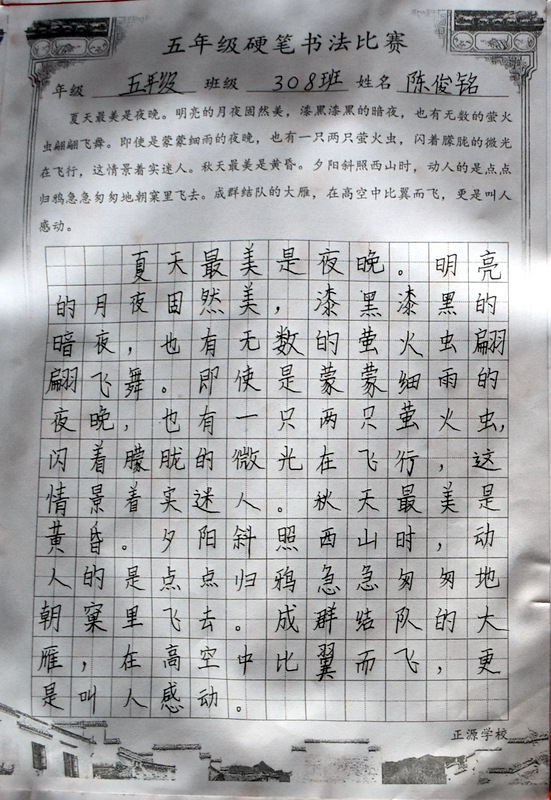 五年级硬笔书法比赛
年级 五年级 班级 308班 姓名 陈俊铭
夏天最美是夜晚。明亮的月夜固然美，漆黑漆黑的暗夜，也有无数的萤火
虫翩翩飞舞。即使是蒙蒙细雨的夜晚，也有一只两只萤火虫，闪着朦胧的微光
在飞行，这情景着实迷人。秋天最美是黄昏。夕阳斜照西山时，动人的是点点
归鸦急急匆匆地朝窠里飞去。成群结队的大雁，在高空中比翼而飞，更是叫人
感动。
夏天最美是夜晚。明亮
的月夜固然美，漆黑漆黑的
暗夜，也有无数的萤火虫翩
翩飞舞。即使是蒙蒙细雨的
夜晚，也有一只两只萤火虫，
闪着朦胧的微光在飞行，这
情景着实迷人。秋天最美是
黄昏。夕阳斜照西山时，动
人的是点点归鸦急急匆匆地
朝窠里飞去。成群结队的大
雁，在高空中比翼而飞，更
是叫人感动。
正源学校